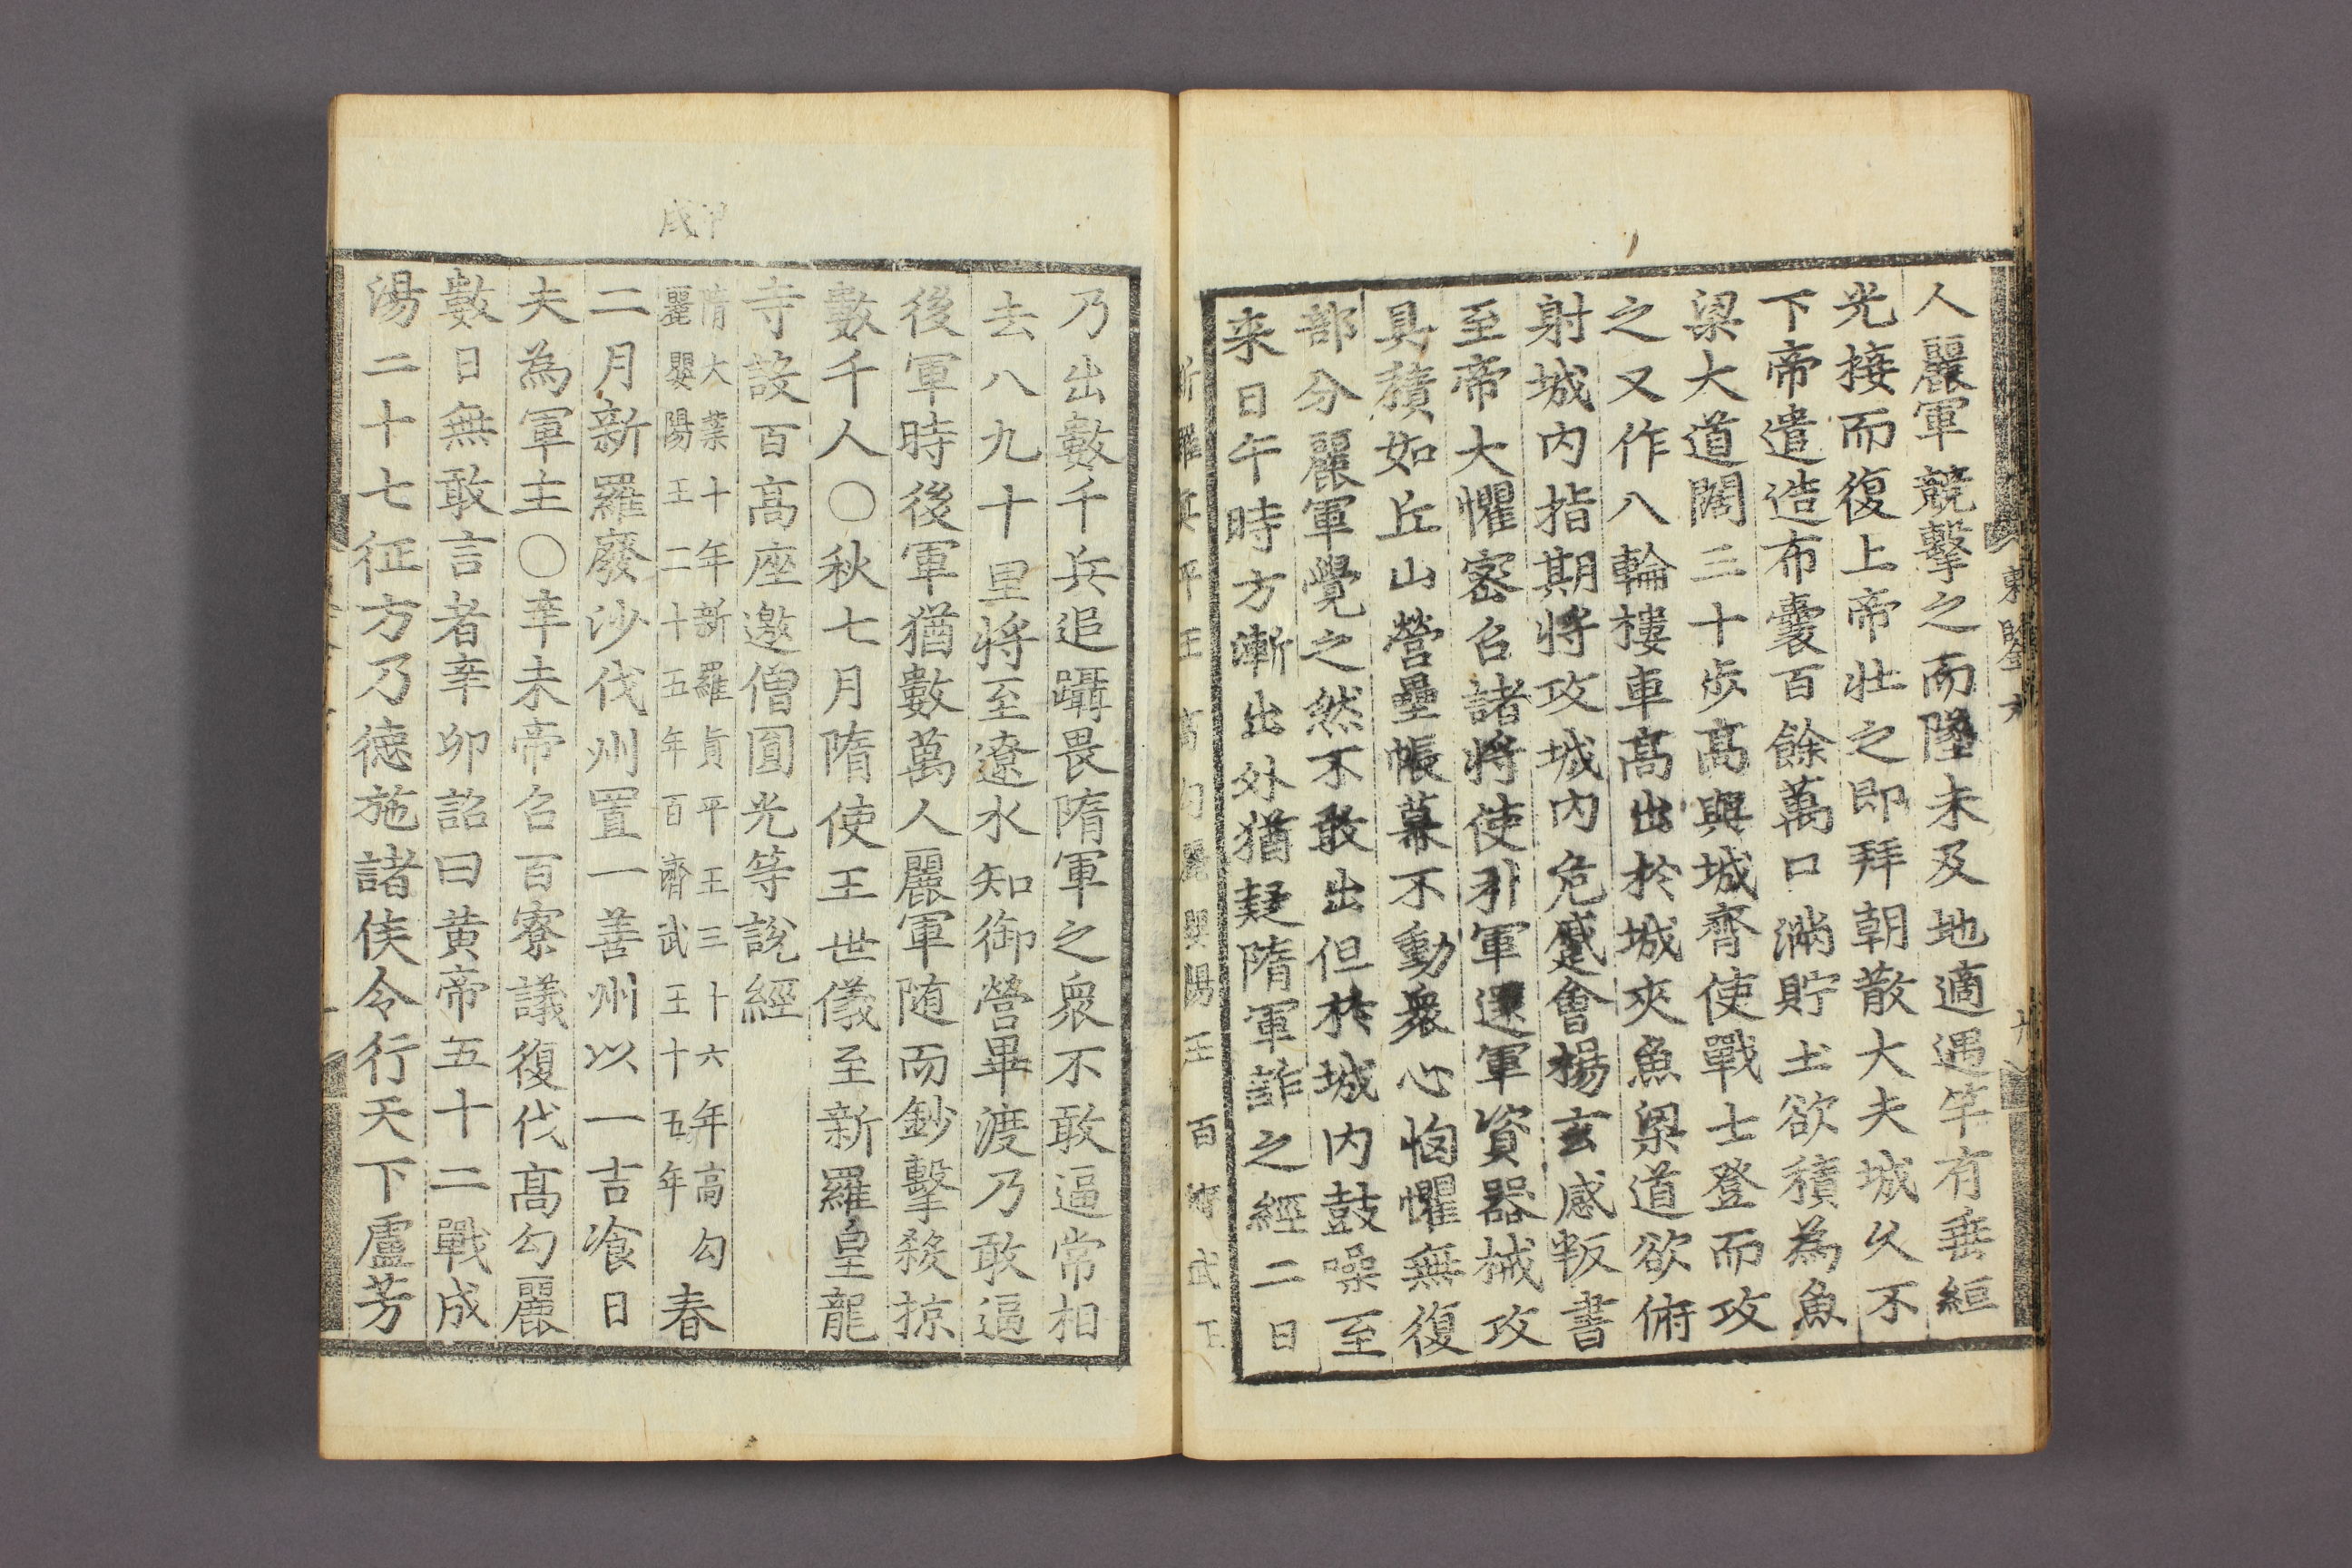 人麗軍競擊之而墜未及地適遇竿有垂絙
光接而復上帝壯之即拜朝散大夫城久不
下帝遣造布囊百餘萬口滿貯土欲積為魚
梁大道闊三十步高與城齊使戰士登而攻
之又作八輪樓車高出於城夾魚梁道欲俯
射城內指期將攻城內危蹙會楊玄感叛書
至帝大懼密召諸將使引軍還軍資器械攻
具積如丘山營壘帳幕不動衆心恟懼無復
部分麗軍覺之然不敢出但於城內鼓噪至
来日午時方漸出外猶疑隋軍詐之經二日
新羅真平王 高句麗嬰陽王 百濟武王
甲戌
乃出數千兵追躡畏隋軍之衆不敢逼常相
去八九十里將至遼水知御營畢渡乃敢逼
後軍時後軍猶數萬人麗軍随而鈔擊殺掠
數千人○秋七月隋使王世儀至新羅皇龍
寺設百高座邀僧圓光等說經
隋大業十年新羅眞平王三十六年高勾
麗嬰陽王二十五年百濟武王十五年
春
二月新羅廢沙伐州置一善州以一吉飡日
夫為軍主○辛未帝召百寮議復伐高勾麗
數日無敢言者辛卯詔曰黄帝五十二戰成
湯二十七征方乃德施諸侯令行天下盧芳